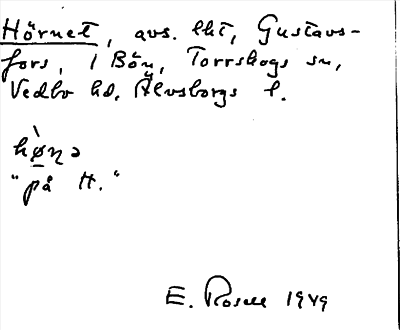 Hörnet, avs. lht, Gustavs-
fors, i Bön, Torrskogs sn,
Vedbo hd, Älvsborgs l.
hø̀ṇə
"på H."
E. Rosell 1949